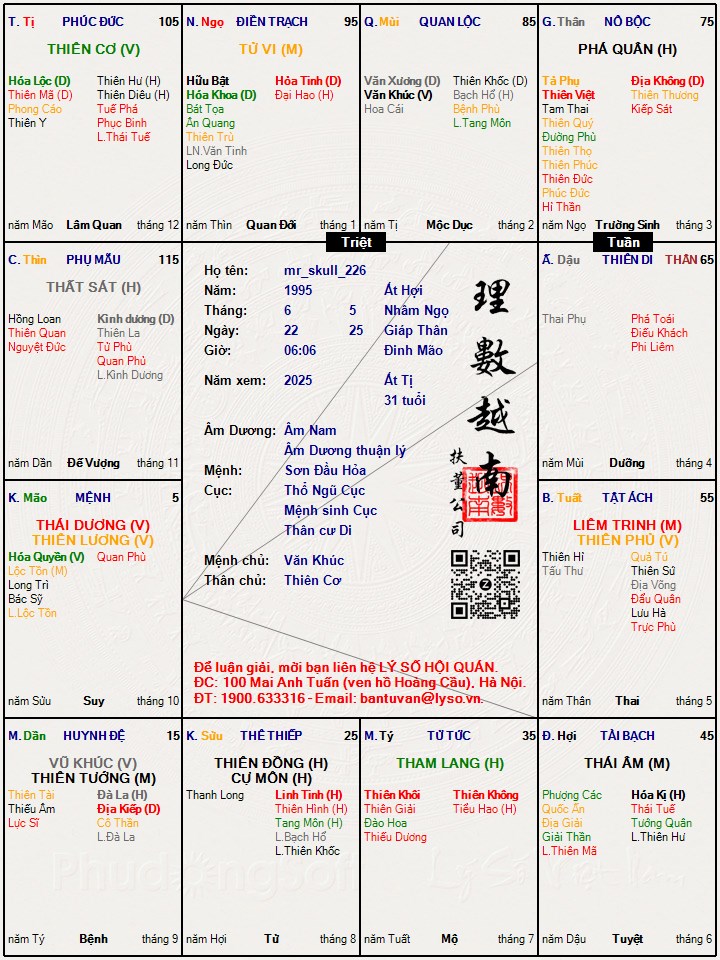 T. Tị PHÚC ĐỨC 105
THIÊN CƠ (V)
Hóa Lộc (D)
Thiên Mã (D)
Phong Cáo
Thiên Y
Thiên Hư (H)
Thiên Diêu (H)
Tuế Phá
Phục Binh
L.Thái Tuế
năm Mão Lâm Quan tháng 12
N. Ngọ ĐIỀN TRẠCH 95
TỬ VI (M)
Hữu Bật
Hóa Khoa (D)
Bát Tọa
Ân Quang
Thiên Trù
LN.Văn Tinh
Long Đức
Hỏa Tinh (D)
Đại Hao (H)
năm Thìn Quan Đới tháng 1
Q. Mùi QUAN LỘC 85
Văn Xương (D)
Văn Khúc (V)
Hoa Cái
Thiên Khốc (D)
Bạch Hổ (H)
Bệnh Phù
L.Tang Môn
năm Tị Mộc Dục tháng 2
G. Thân NÔ BỘC 75
PHÁ QUÂN (H)
Tả Phụ
Thiên Việt
Tam Thai
Thiên Quý
Đường Phù
Thiên Thọ
Thiên Phúc
Thiên Đức
Phúc Đức
Hỉ Thần
Địa Không (D)
Thiên Thương
Kiếp Sát
năm Ngọ Trường Sinh tháng 3
Triệt
Tuần
C. Thìn PHỤ MẪU 115
THẤT SÁT (H)
Hồng Loan
Thiên Quan
Nguyệt Đức
Kình dương (D)
Thiên La
Tử Phù
Quan Phủ
L.Kình Dương
năm Dần Đế Vượng tháng 11
Họ tên: mr_skull_226
Năm: 1995 Ất Hợi
Tháng: 6 5 Nhâm Ngọ
Ngày: 22 25 Giáp Thân
Giờ: 06:06 Đinh Mão
Năm xem: 2025 Ất Tị
31 tuổi
Âm Dương: Âm Nam
Âm Dương thuận lý
Mệnh: Sơn Đầu Hỏa
Cục: Thổ Ngũ Cục
Mệnh sinh Cục
Thân cư Di
Mệnh chủ: Văn Khúc
Thân chủ: Thiên Cơ
理數越南
扶董公司
Z
Để luận giải, mời bạn liên hệ LÝ SỐ HỘI QUÁN.
ĐC: 100 Mai Anh Tuấn (ven hồ Hoàng Cầu), Hà Nội.
ĐT: 1900.633316 - Email: bantuvan@lyso.vn.
Ấ. Dậu THIÊN DI THÂN 65
Thai Phụ
Phá Toái
Điếu Khách
Phi Liêm
năm Mùi Dưỡng tháng 4
K. Mão MỆNH 5
THÁI DƯƠNG (V)
THIÊN LƯƠNG (V)
Hóa Quyền (V)
Lộc Tồn (M)
Long Trì
Bác Sỹ
L.Lộc Tồn
Quan Phù
năm Sửu Suy tháng 10
B. Tuất TẬT ÁCH 55
LIÊM TRINH (M)
THIÊN PHỦ (V)
Thiên Hỉ
Tấu Thư
Quả Tú
Thiên Sứ
Địa Võng
Đẩu Quân
Lưu Hà
Trực Phù
năm Thân Thai tháng 5
M. Dần HUYNH ĐỆ 15
VŨ KHÚC (V)
THIÊN TƯỚNG (M)
Thiên Tài
Thiếu Âm
Lực Sĩ
Đà La (H)
Địa Kiếp (D)
Cô Thần
L.Đà La
năm Tý Bệnh tháng 9
K. Sửu THÊ THIẾP 25
THIÊN ĐỒNG (H)
CỰ MÔN (H)
Thanh Long
Linh Tinh (H)
Thiên Hình (H)
Tang Môn (H)
L.Bạch Hổ
L.Thiên Khốc
năm Hợi Tử tháng 8
M. Tý TỬ TỨC 35
THAM LANG (H)
Thiên Khôi
Thiên Giải
Đào Hoa
Thiếu Dương
Thiên Không
Tiểu Hao (H)
năm Tuất Mộ tháng 7
Đ. Hợi TÀI BẠCH 45
THÁI ÂM (M)
Phượng Các
Quốc Ấn
Địa Giải
Giải Thần
L.Thiên Mã
Hóa Kị (H)
Thái Tuế
Tướng Quân
L.Thiên Hư
năm Dậu Tuyệt tháng 6